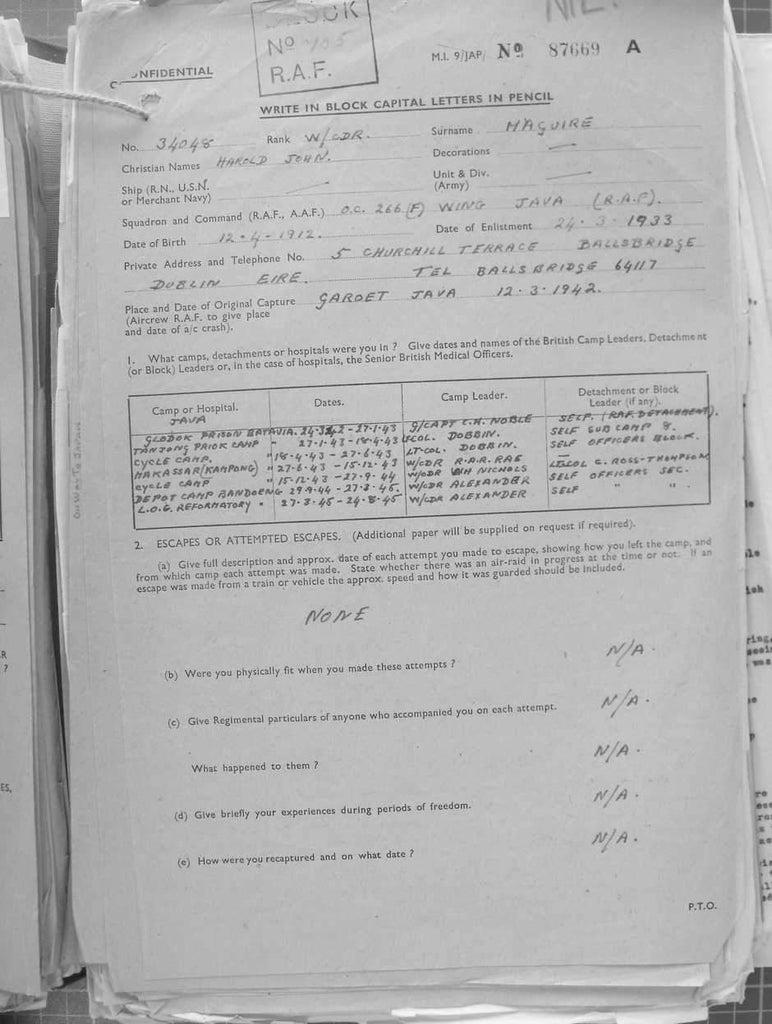 NIL.
BLOCK
No 105
R.A.F.
M.I. 9/JAP/ No 87669 A
CONFIDENTIAL
WRITE IN BLOCK CAPITAL LETTERS IN PENCIL
No. 34048 Rank W/CDR. Surname MAGUIRE
Christian Names HAROLD JOHN. Decorations —
Ship (R.N., U.S.N. or Merchant Navy) — Unit & Div. (Army) —
Squadron and Command (R.A.F., A.A.F.) O.C. 266 (F) WING JAVA (R.A.F).
Date of Birth 12-4-1912. Date of Enlistment 24-3-1933
Private Address and Telephone No. 5 CHURCHILL TERRACE BALLSBRIDGE
DUBLIN EIRE. TEL BALLSBRIDGE 64117
Place and Date of Original Capture GAROET JAVA 12-3-1942.
(Aircrew R.A.F. to give place
and date of a/c crash).
1. What camps, detachments or hospitals were you in ? Give dates and names of the British Camp Leaders, Detachment
(or Block) Leaders or, in the case of hospitals, the Senior British Medical Officers.
Camp or Hospital. Dates. Camp Leader. Detachment or Block Leader (if any).
JAVA
GLODOK PRISON BATAVIA. 24-3-42 - 27-1-43 G/CAPT C.H. NOBLE SELF. (RAF DETACHMENT).
TANJONG PRIOK CAMP " 27-1-43 - 18-4-43 LT COL. DOBBIN. SELF SUB CAMP 8.
CYCLE CAMP. " 18-4-43 - 27-6-43 LT-COL. DOBBIN. SELF OFFICERS BLOCK.
MAKASSAR (KAMPONG) " 27-6-43 - 15-12-43 W/CDR R.A.R. RAE —
CYCLE CAMP " 15-12-43 - 27-9-44 W/CDR WH NICHOLS LT COL C. ROSS-THOMPSON
DEPOT CAMP BANDOENG 29-9-44 - 27-3-45. W/CDR ALEXANDER SELF OFFICERS SEC.
L.O.G. REFORMATORY " 27-3-45 - 24-8-45 W/CDR ALEXANDER SELF " " .
2. ESCAPES OR ATTEMPTED ESCAPES. (Additional paper will be supplied on request if required).
(a) Give full description and approx. date of each attempt you made to escape, showing how you left the camp, and
from which camp each attempt was made. State whether there was an air-raid in progress at the time or not. If an
escape was made from a train or vehicle the approx. speed and how it was guarded should be included.
NONE
(b) Were you physically fit when you made these attempts ? N/A.
(c) Give Regimental particulars of anyone who accompanied you on each attempt. N/A.
What happened to them ? N/A.
(d) Give briefly your experiences during periods of freedom. N/A.
(e) How were you recaptured and on what date ? N/A.
P.T.O.